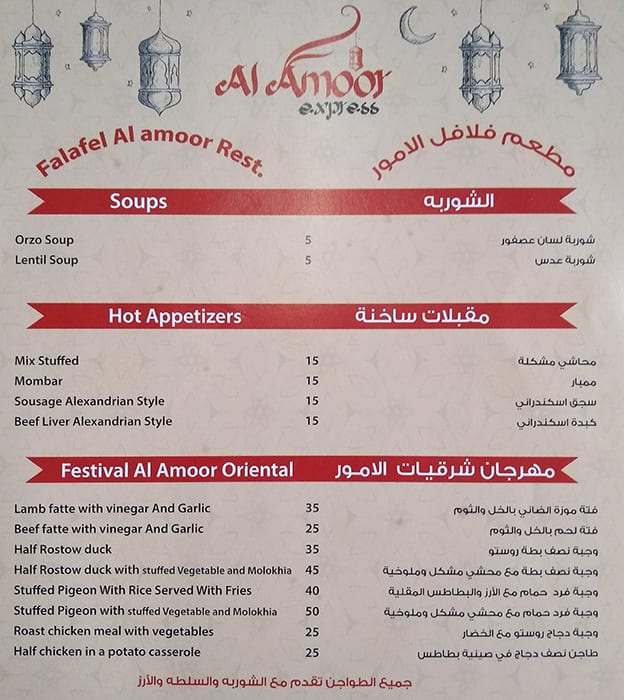 Al Amoor
express
Falafel Al amoor Rest. مطعم فلافل الامور
Soups الشوربه
Orzo Soup 5 شوربة لسان عصفور
Lentil Soup 5 شوربة عدس
Hot Appetizers مقبلات ساخنة
Mix Stuffed 15 محاشي مشكلة
Mombar 15 ممبار
Sousage Alexandrian Style 15 سجق اسكندراني
Beef Liver Alexandrian Style 15 كبدة اسكندراني
Festival Al Amoor Oriental مهرجان شرقيات الامور
Lamb fatte with vinegar And Garlic 35 فتة موزة الضاني بالخل والثوم
Beef fatte with vinegar And Garlic 25 فتة لحم بالخل والثوم
Half Rostow duck 35 وجبة نصف بطة روستو
Half Rostow duck with stuffed Vegetable and Molokhia 45 وجبة نصف بطة مع محشي مشكل وملوخية
Stuffed Pigeon With Rice Served With Fries 40 وجبة فرد حمام مع الأرز والبطاطس المقلية
Stuffed Pigeon with stuffed Vegetable and Molokhia 50 وجبة فرد حمام مع محشي مشكل وملوخية
Roast chicken meal with vegetables 25 وجبة دجاج روستو مع الخضار
Half chicken in a potato casserole 25 طاجن نصف دجاج في صينية بطاطس
جميع الطواجن تقدم مع الشوربه والسلطه والأرز